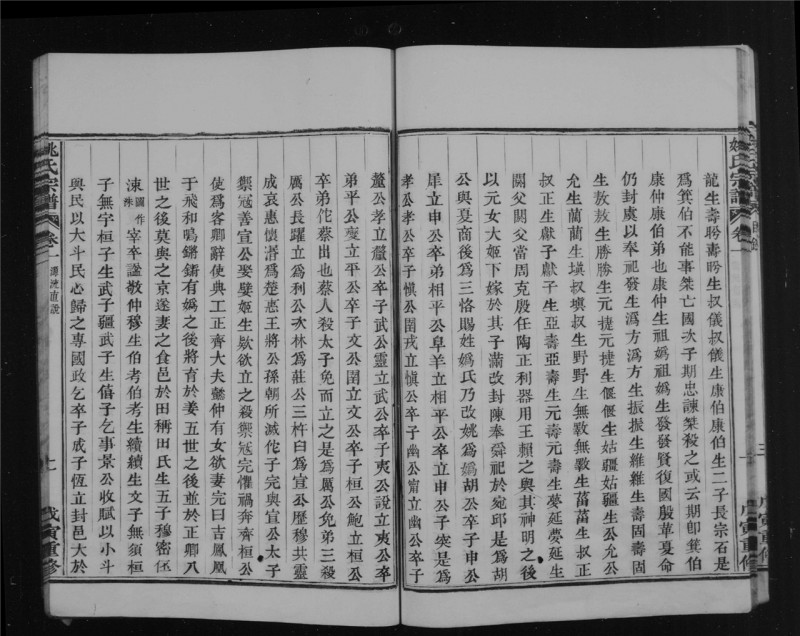 龍生壽盻壽盻生叔儀叔儀生康伯康伯生二子長宗石是
爲箕伯不能事桀亡國次子期忠諫桀殺之或云期卽箕伯
康仲康伯弟也康仲生祖嬀祖嬀生發發賢復國殷華夏命
仍封虞以奉祀發生溈方溈方生振振生維維生壽固壽固
生敖敖生勝勝生元㨗元㨗生偃偃生姑疆姑疆生公允公
允生藺藺生塡叔塡叔生野野生無斁無斁生萳萳生叔正
叔正生獻子獻子生亞壽亞壽生元壽元壽生夢延夢延生
閼父閼父當周克殷任陶正利器用王賴之與其神明之後
以元女大姬下嫁於其子滿改封陳奉舜祀於宛邱是爲胡
公與夏商後爲三恪賜姓嬀氏乃改姚爲嬀胡公卒子申公
犀立申公卒弟相平公皐羊立相平公卒立申公子突是爲
孝公孝公卒子愼公圉戎立愼公卒子幽公甯立幽公卒子
釐公孝立釐公卒子武公靈立武公卒子夷公說立夷公卒
弟平公燮立平公卒子文公圉立文公卒子桓公鮑立桓公
卒弟佗蔡出也蔡人殺太子免而立之是爲厲公免弟三殺
厲公長躍立爲利公次林爲莊公三杵臼爲宣公歷穆共靈
成哀惠懷湣爲楚惠王將公孫朝所滅佗子完與宣公太子
禦寇善宣公嬖嬖姬生欵欲立之殺禦寇完懼禍奔齊桓公
使爲客卿辭使典工正齊大夫懿仲有女欲妻完曰吉鳳凰
于飛和鳴鏘鏘有嬀之後將育於姜五世之後並於正卿八
世之後莫與之京遂妻之食邑於田稱田氏生五子穆密伍
涑 圖作洙 宰卒諡敬仲穆生伯考伯考生續續生文子無須桓
子無宇桓子生武子疆武子生僖子乞事景公收賦以小斗
與民以大斗民心歸之專國政乞卒子成子恆立封邑大於
姚氏宗譜
卷一
譚統直說
七
戊寅重修
姚氏宗譜
卷一
戊寅重修